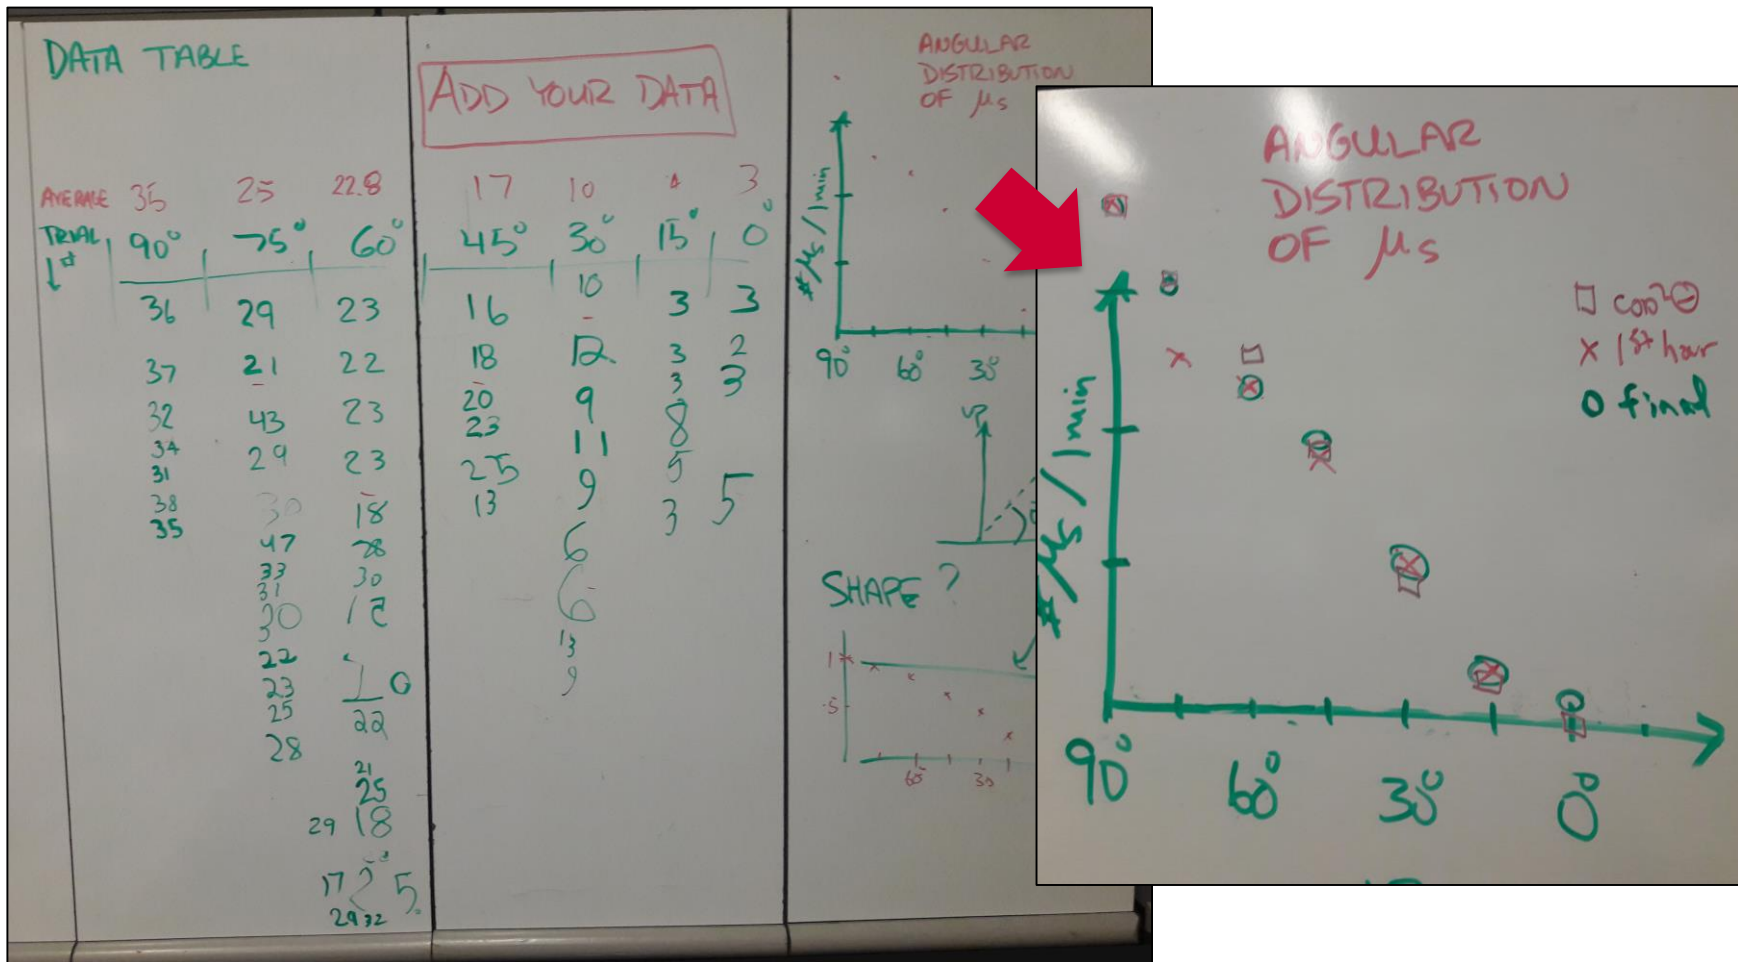 DATA TABLE
ADD YOUR DATA
AVERAGE 35 25 22.8 17 10 4 3
TRIAL # 90° 75° 60° 45° 30° 15° 0°
36 29 23 16 10 3 3
37 21 22 18 12 3 2
32 43 23 20 9 3 3
34 29 23 23 11 8 5
31 30 18 25 9 5
38 47 28 13 6 3
35 33 30 6
31 13
30 22 9
22 21
23 25
25 29 18
28 17
29 32
ANGULAR
DISTRIBUTION
OF μs
# μs / 1min
90° 60° 30°
SHAPE ?
1
.5
60 30
ANGULAR
DISTRIBUTION
OF μs
□ cos²Θ
x 1st hour
O final
# μs / 1min
90° 60° 30° 0°